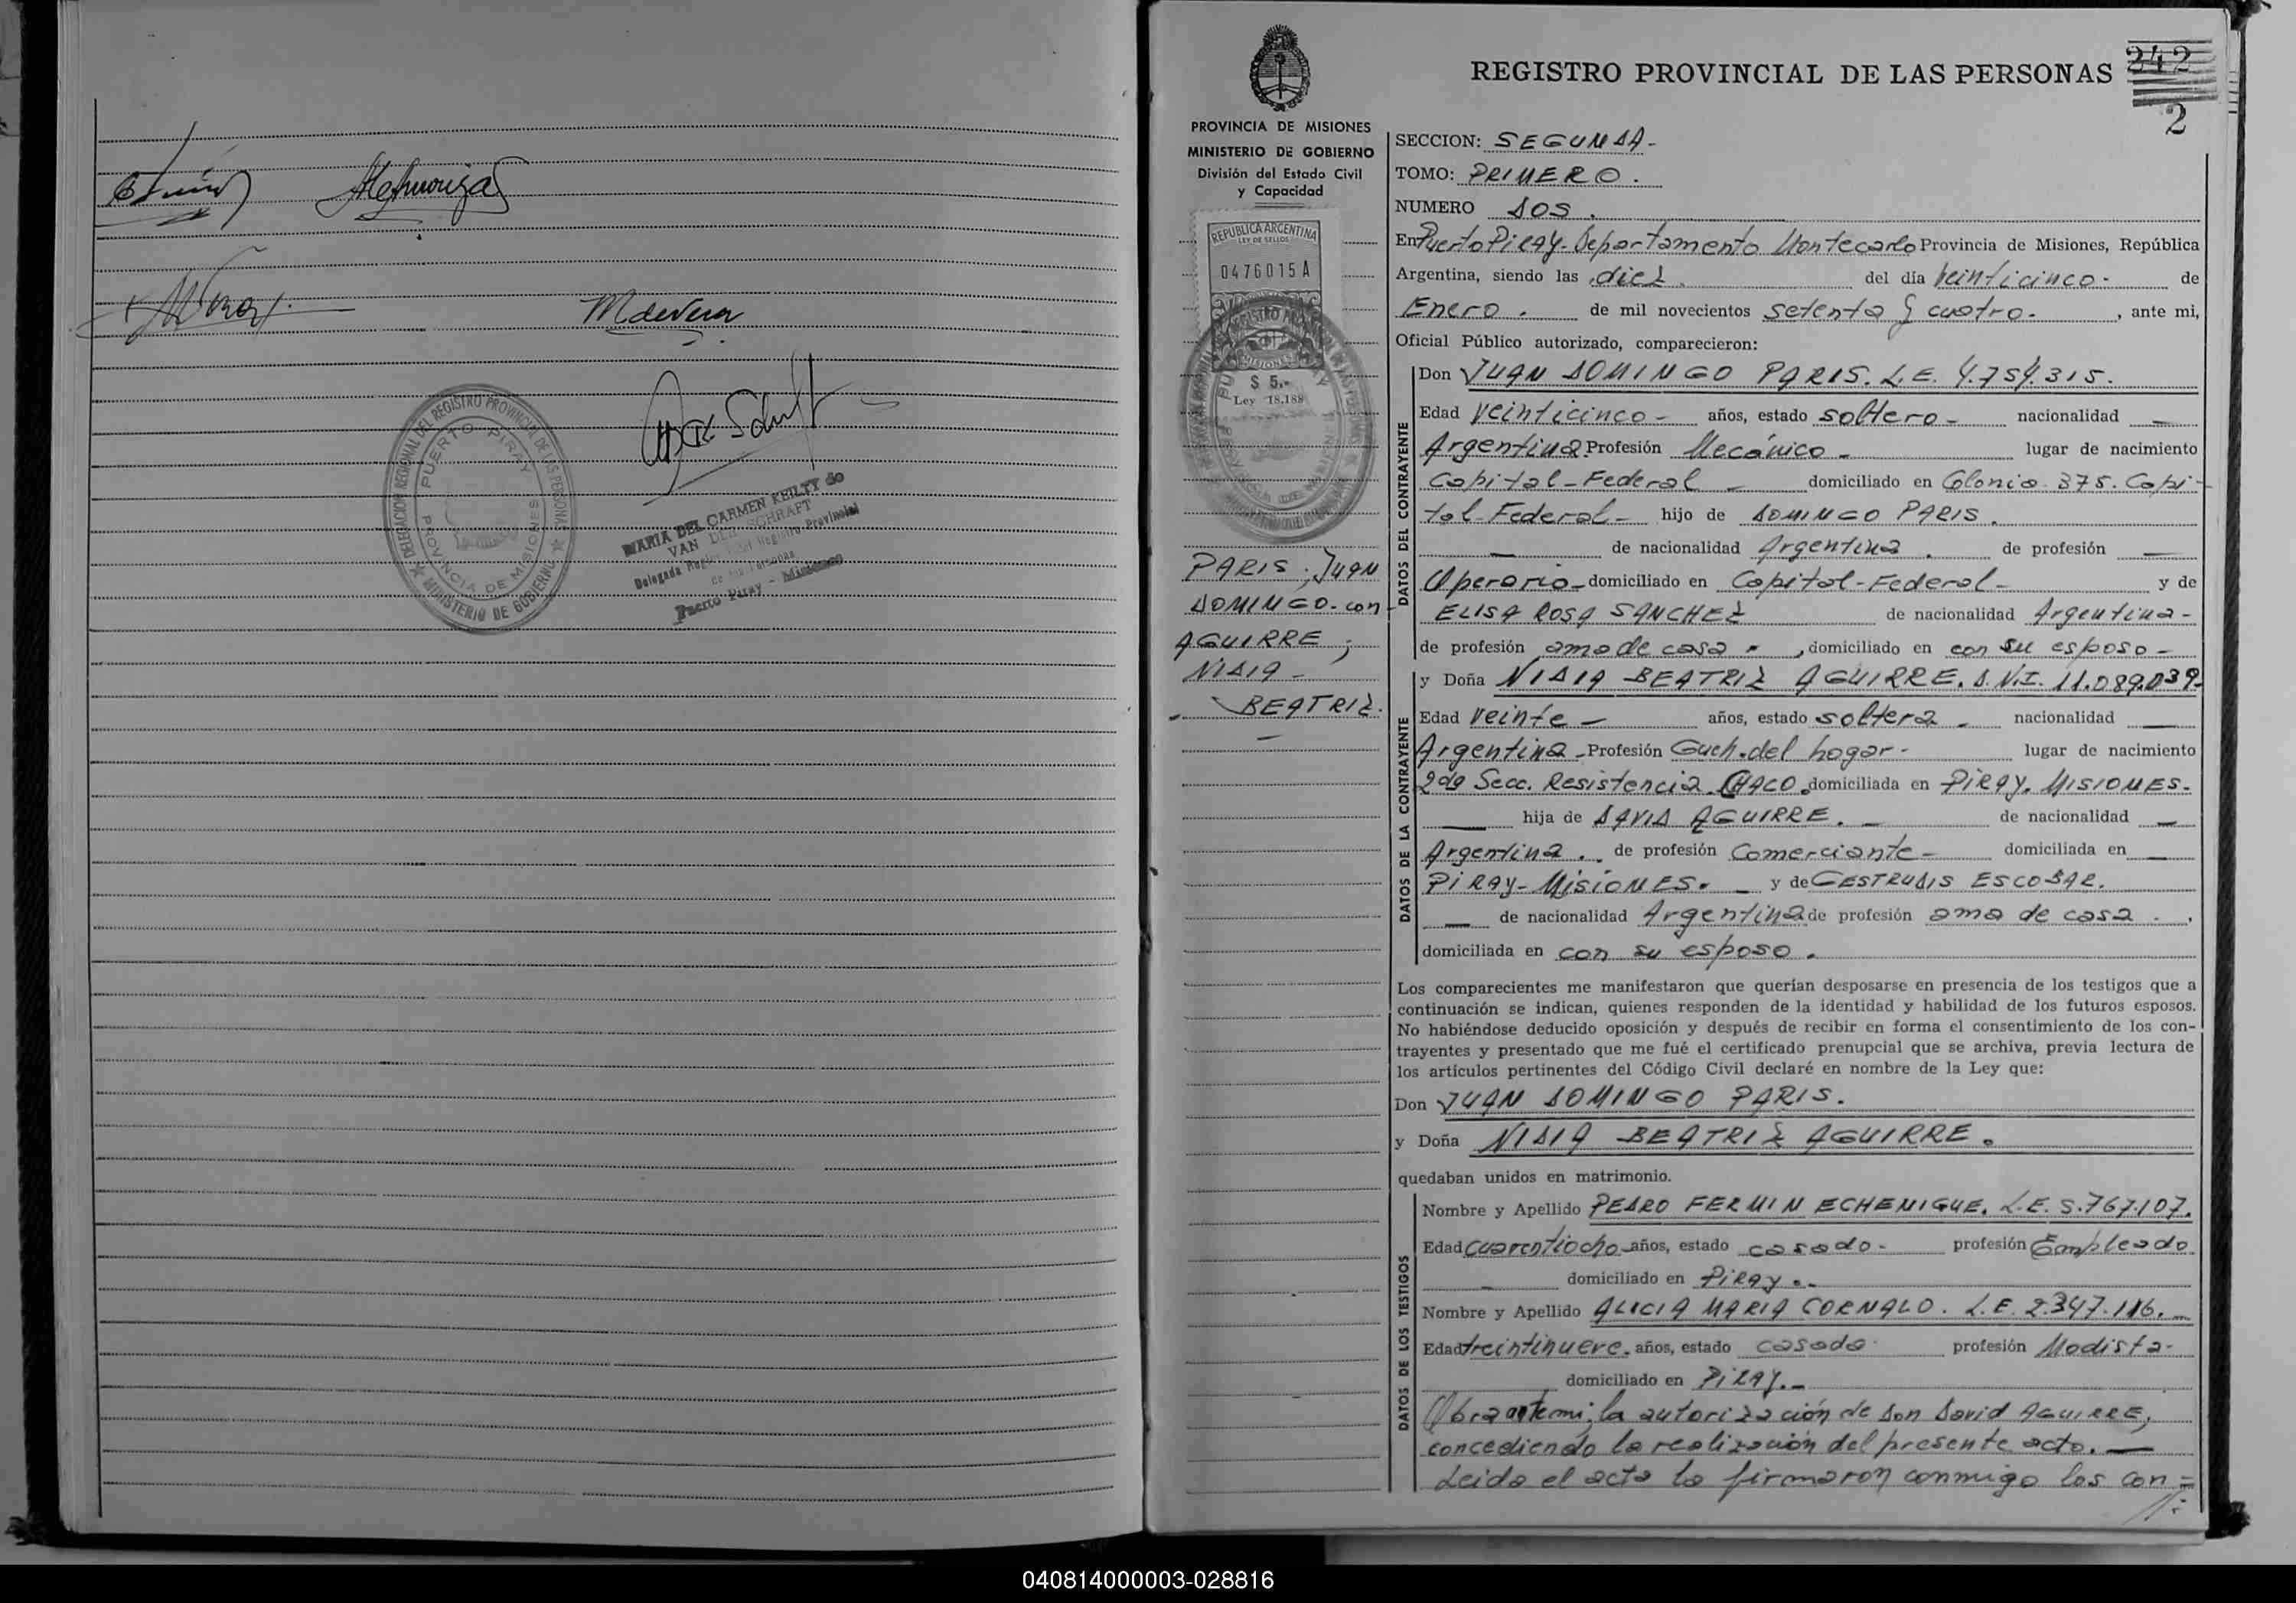 MdeVera
DELEGACION REGIONAL DEL REGISTRO PROVINCIAL DE LAS PERSONAS
PUERTO PIRAY
PROVINCIA DE MISIONES
★ MINISTERIO DE GOBIERNO ★
MARIA DEL CARMEN KEILTY de
VAN DER SCHRAFT
Delegada Registro Provincial
de las Personas
Puerto Piray - Misiones
242
2
REGISTRO PROVINCIAL DE LAS PERSONAS
PROVINCIA DE MISIONES
MINISTERIO DE GOBIERNO
División del Estado Civil
y Capacidad
REPUBLICA ARGENTINA
LEY DE SELLOS
0476015 A
MISIONES
$ 5.-
Ley 18.188
PARIS, JUAN
DOMINGO-con
AGUIRRE,
NIDIA-
BEATRIZ.
SECCION: SEGUNDA-
TOMO: PRIMERO.
NUMERO DOS.
En Puerto Piray-Departamento Montecarlo Provincia de Misiones, República
Argentina, siendo las diez. del día veinticinco- de
Enero. de mil novecientos setenta y cuatro- , ante mi,
Oficial Público autorizado, comparecieron:
DATOS DEL CONTRAYENTE
Don JUAN DOMINGO PARIS. L.E. 4.754.315.
Edad veinticinco- años, estado soltero- nacionalidad —
Argentina- Profesión Mecánico- lugar de nacimiento
Capital-Federal- domiciliado en Colonia 375. Capi-
tal-Federal- hijo de DOMINGO PARIS.
— de nacionalidad Argentina. de profesión —
Operario- domiciliado en Capital-Federal- y de
ELISA ROSA SANCHEZ de nacionalidad Argentina-
de profesión ama de casa- , domiciliado en con su esposo-
DATOS DE LA CONTRAYENTE
y Doña NIDIA BEATRIZ AGUIRRE. D.N.I. 11.089.039-
Edad veinte- años, estado soltera- nacionalidad —
Argentina- Profesión Queh. del hogar- lugar de nacimiento
2da Secc. Resistencia CHACO. domiciliada en PIRAY. MISIONES.
— hija de DAVID AGUIRRE. — de nacionalidad —
Argentina. de profesión Comerciante- domiciliada en —
PIRAY-MISIONES. — y de GESTRUDIS ESCOBAR.
— de nacionalidad Argentina de profesión ama de casa. ,
domiciliada en con su esposo.
Los comparecientes me manifestaron que querían desposarse en presencia de los testigos que a
continuación se indican, quienes responden de la identidad y habilidad de los futuros esposos.
No habiéndose deducido oposición y después de recibir en forma el consentimiento de los con-
trayentes y presentado que me fué el certificado prenupcial que se archiva, previa lectura de
los artículos pertinentes del Código Civil declaré en nombre de la Ley que:
Don JUAN DOMINGO PARIS.
y Doña NIDIA BEATRIZ AGUIRRE.
quedaban unidos en matrimonio.
DATOS DE LOS TESTIGOS
Nombre y Apellido PEDRO FERMIN ECHENIQUE. L.E. 5.767.107.
Edad cuarentiocho- años, estado casado- profesión Empleado
— domiciliado en Piray.-
Nombre y Apellido ALICIA MARIA CORNALO. L.E. 2.347.116.
Edad treintinueve. años, estado casada- profesión Modista-
domiciliado en PIRAY.-
Obra ante mi; la autorización de Don David AGUIRRE,
concediendo la realización del presente acto.—
Leida el acta la firmaron conmigo los con=
040814000003-028816